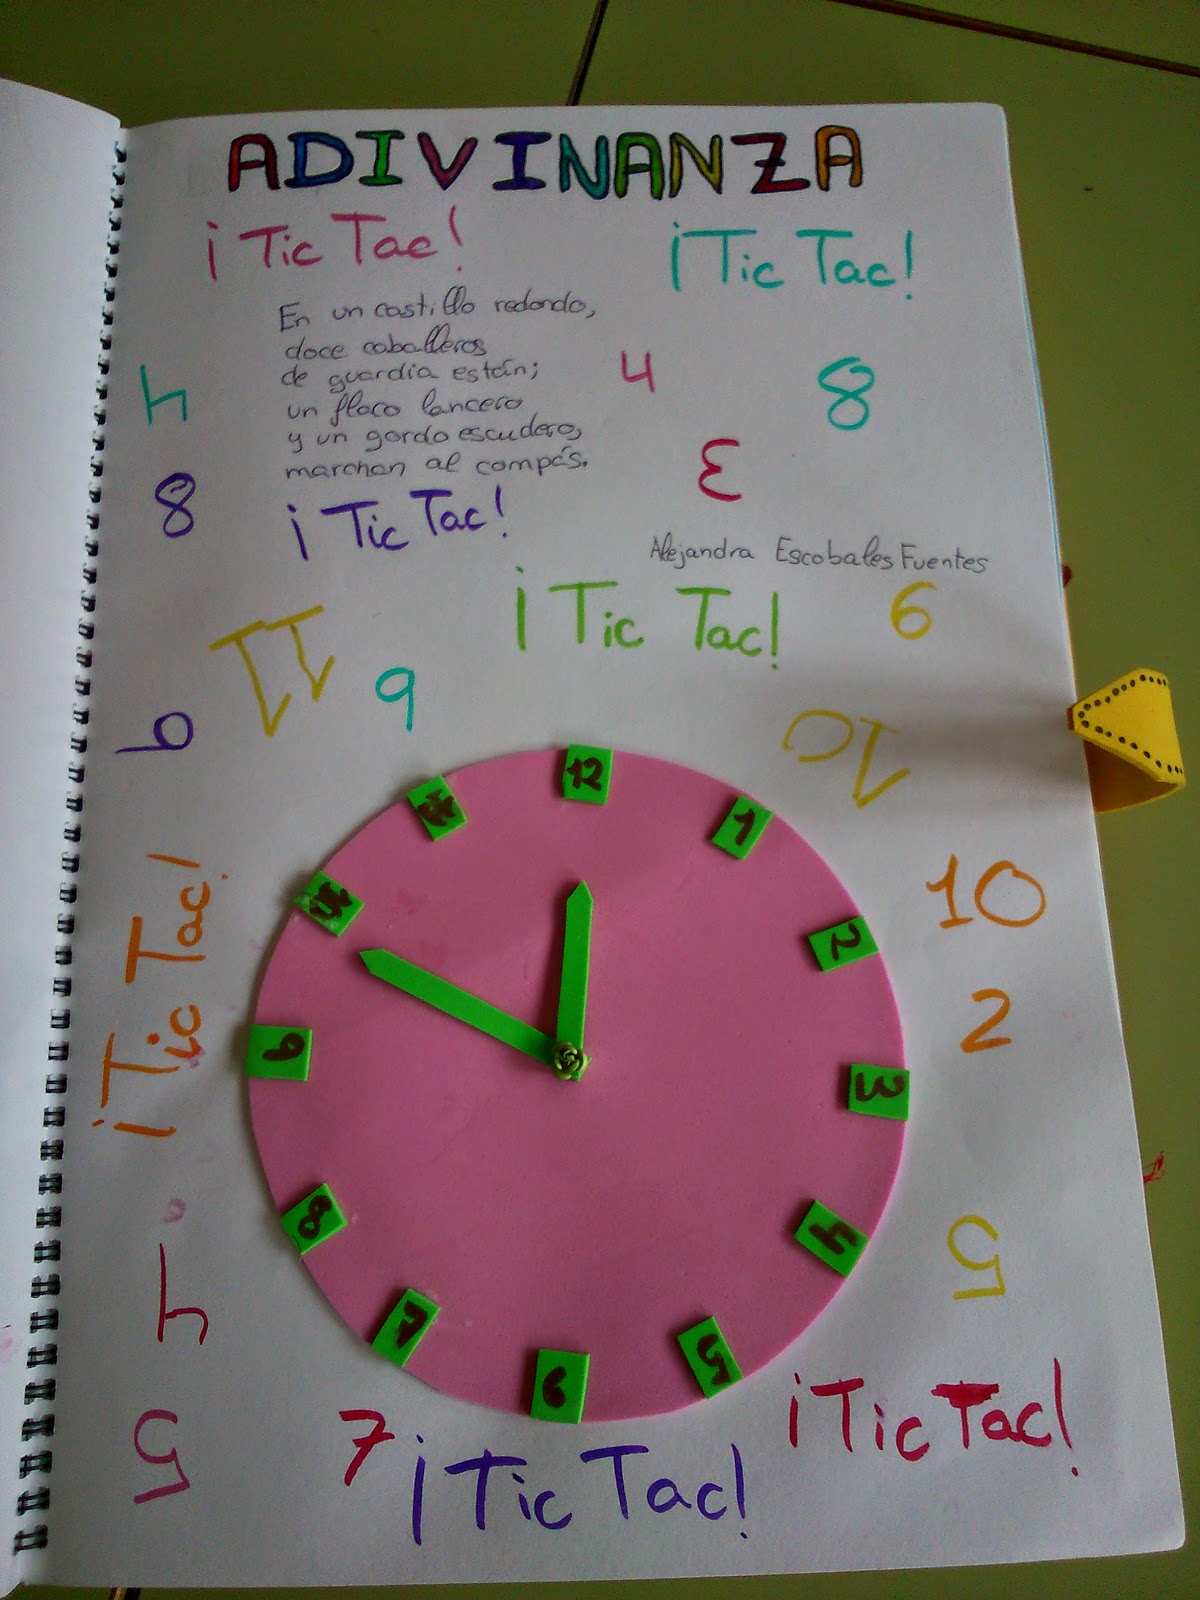 ADIVINANZA
¡Tic Tac!
¡Tic Tac!
En un castillo redondo,
doce caballeros
de guardia están;
un flaco lancero
y un gordo escudero,
marchan al compás.
4
4
8
3
8
¡Tic Tac!
Alejandra Escobales Fuentes
¡Tic Tac!
6
11
9
9
10
12
1
2
3
4
5
6
7
8
9
10
2
¡Tic Tac!
5
4
5
7
¡Tic Tac!
¡Tic Tac!